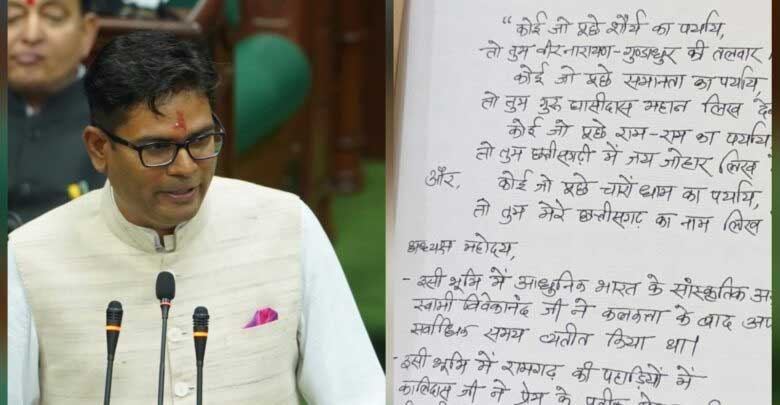 “कोई जो पूछे शौर्य का पर्याय,
तो तुम वीरनारायण-गुण्डाधुर की तलवार
कोई जो पूछे समानता का पर्याय,
तो तुम गुरु घासीदास महान लिख
कोई जो पूछे राम-राम का पर्याय
तो तुम छत्तीसगढ़ी में जय जोहार लिख
और, कोई जो पूछे चारों धाम का पर्याय,
तो तुम मेरे छत्तीसगढ़ का नाम लिख
अध्यक्ष महोदय,
- इसी भूमि में आधुनिक भारत के सांस्कृतिक
स्वामी विवेकानंद जी ने कलकत्ता के बाद
सर्वाधिक समय व्यतीत किया था।
- इसी भूमि में रामगढ़ की पहाड़ियों में
कालिदास जी ने प्रेम के